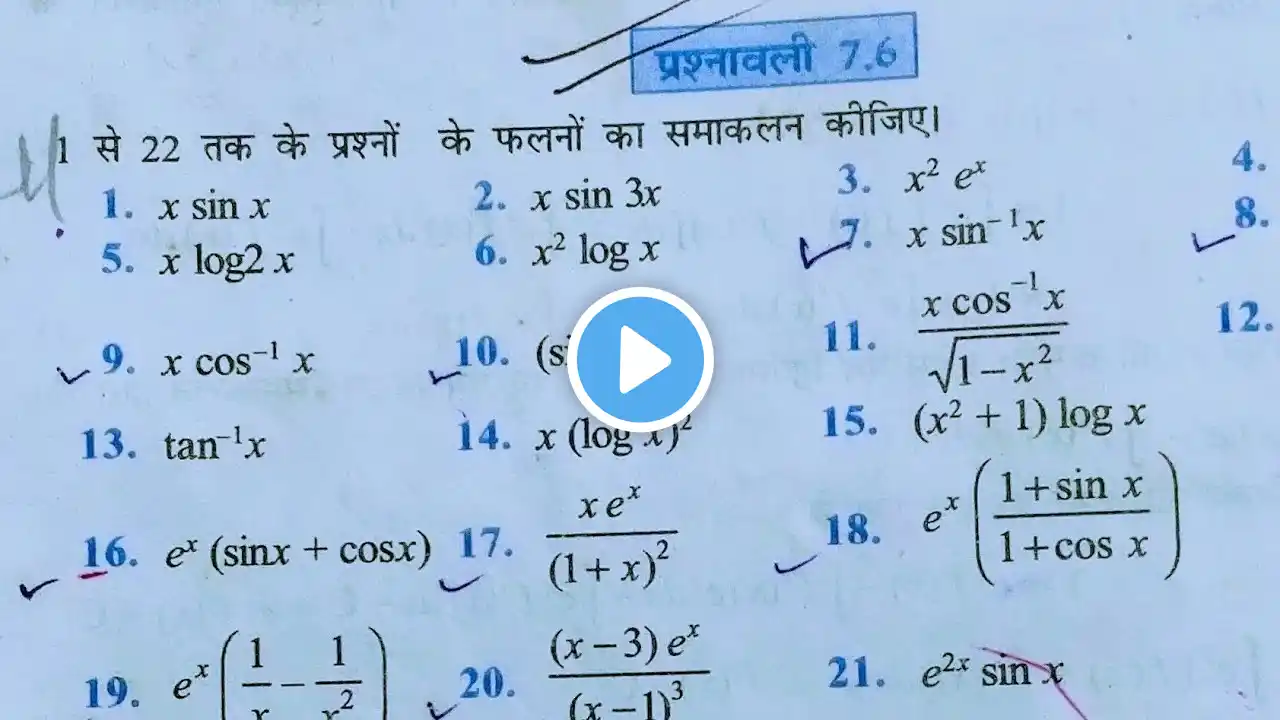 प्रश्नावली 7.6
1 से 22 तक के प्रश्नों के फलनों का समाकलन कीजिए।
1. x sin x 2. x sin 3x 3. x² eˣ 4.
5. x log2 x 6. x² log x 7. x sin⁻¹x 8.
9. x cos⁻¹ x 10. 11. x cos⁻¹x / √(1−x²) 12.
13. tan⁻¹x 14. x (log x)² 15. (x² + 1) log x
16. eˣ (sinx + cosx) 17. x eˣ / (1+x)² 18. eˣ ((1+sin x) / (1+cos x))
19. eˣ (1/x − 1/x²) 20. (x−3) eˣ / (x−1)³ 21. e²ˣ sin x